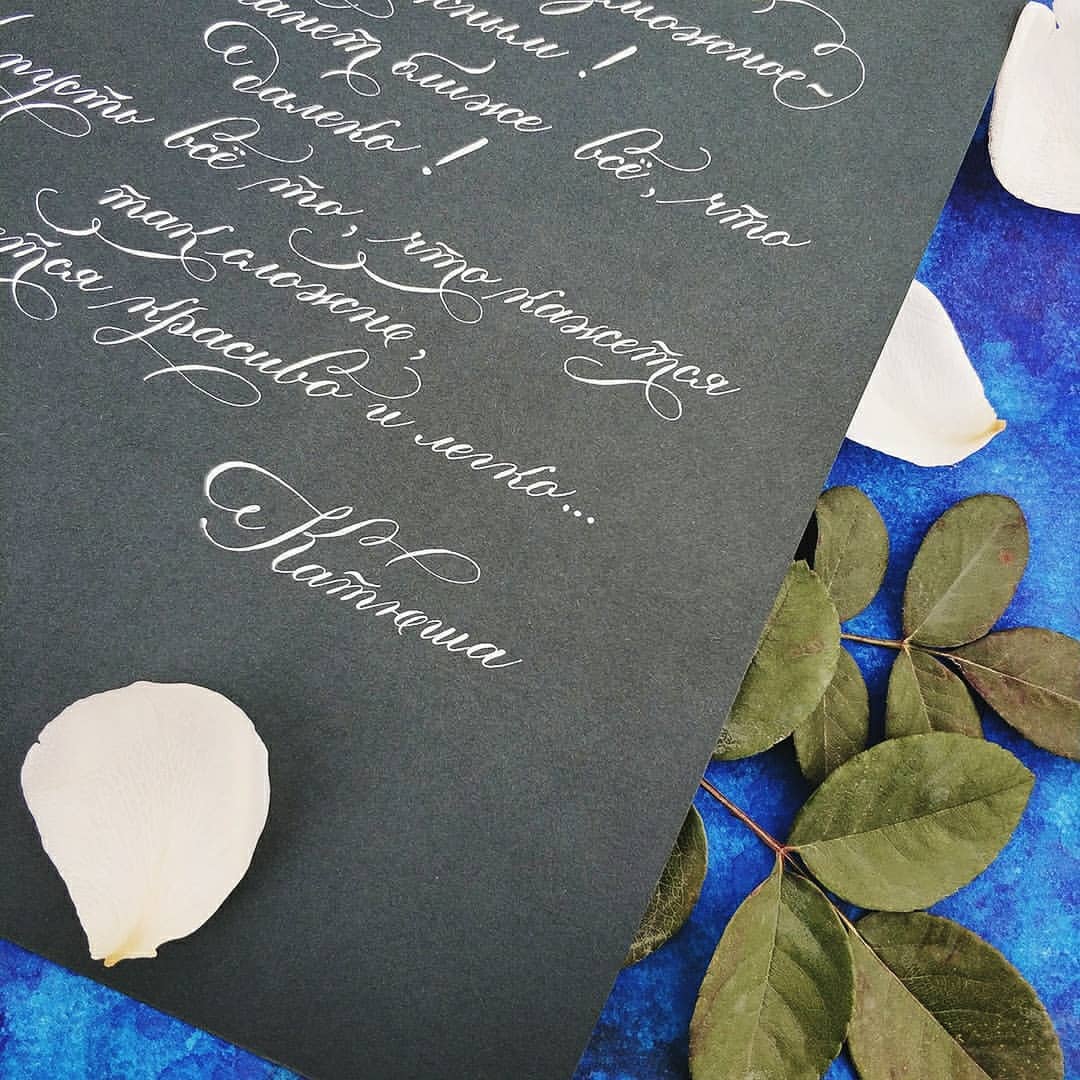 зможное~
ным!
анет ближе всё, что
далеко!
пусть всё то, что кажется
так сложно,
тся красиво и легко...
Катюша